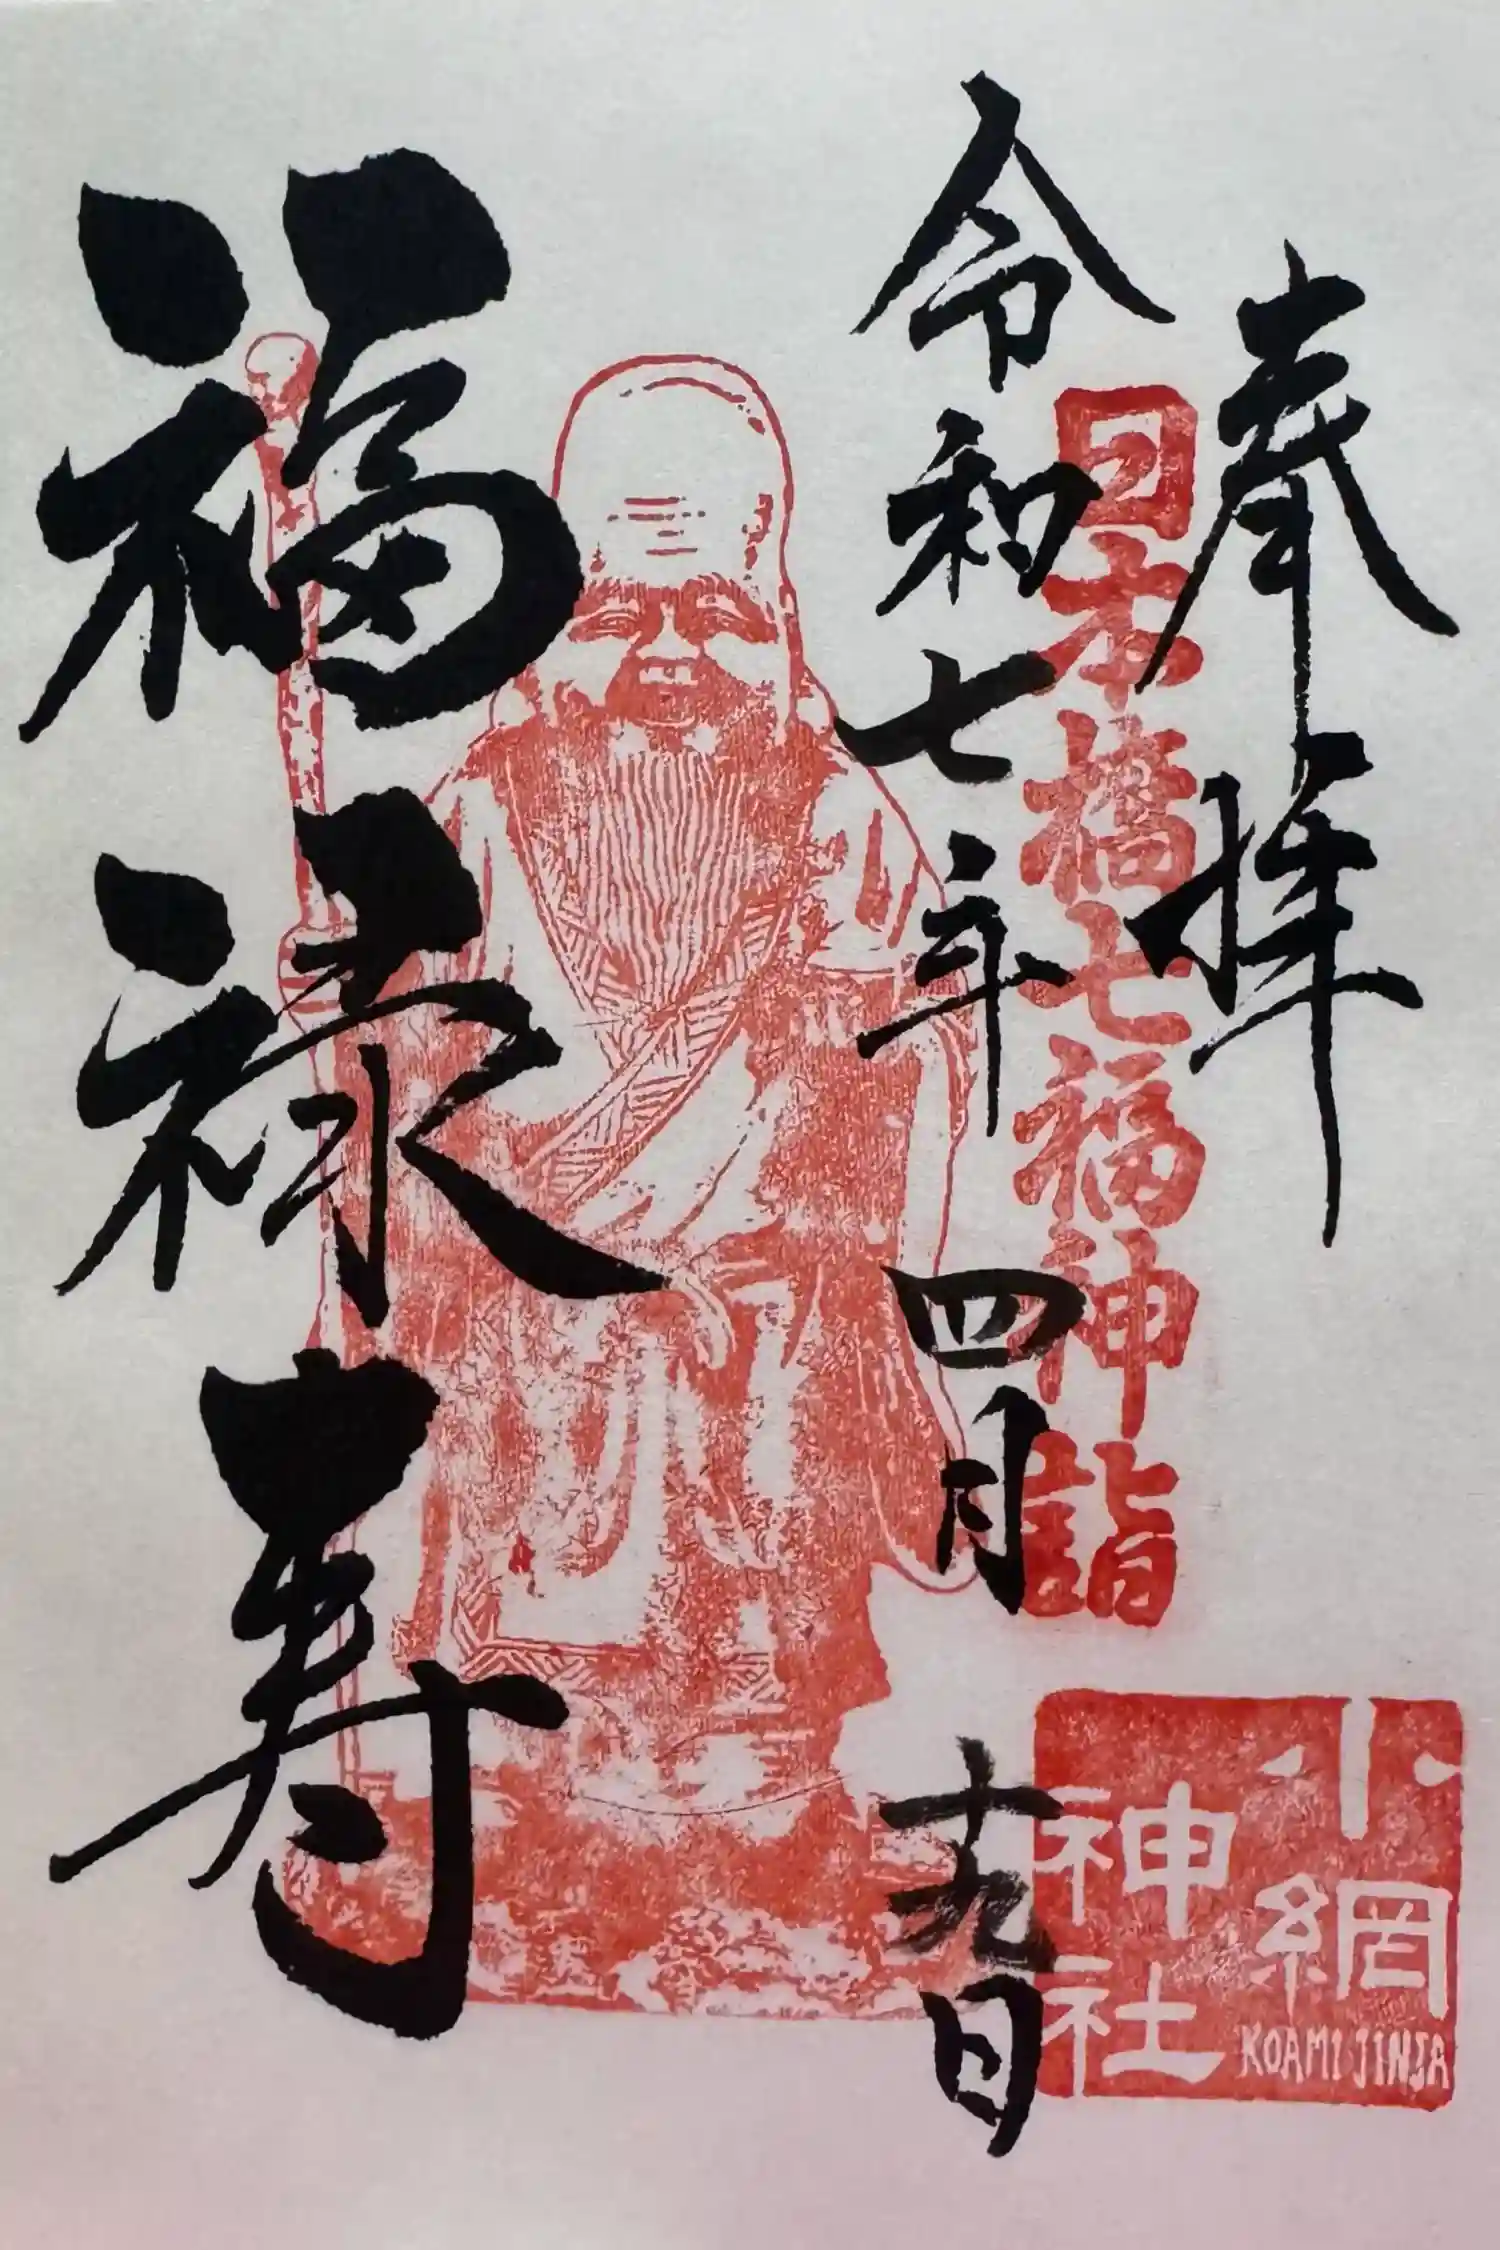 奉拝
日本橋七福神詣
小網
神社
KOAMI JINJA
令和七年 四月 十九日
福禄寿